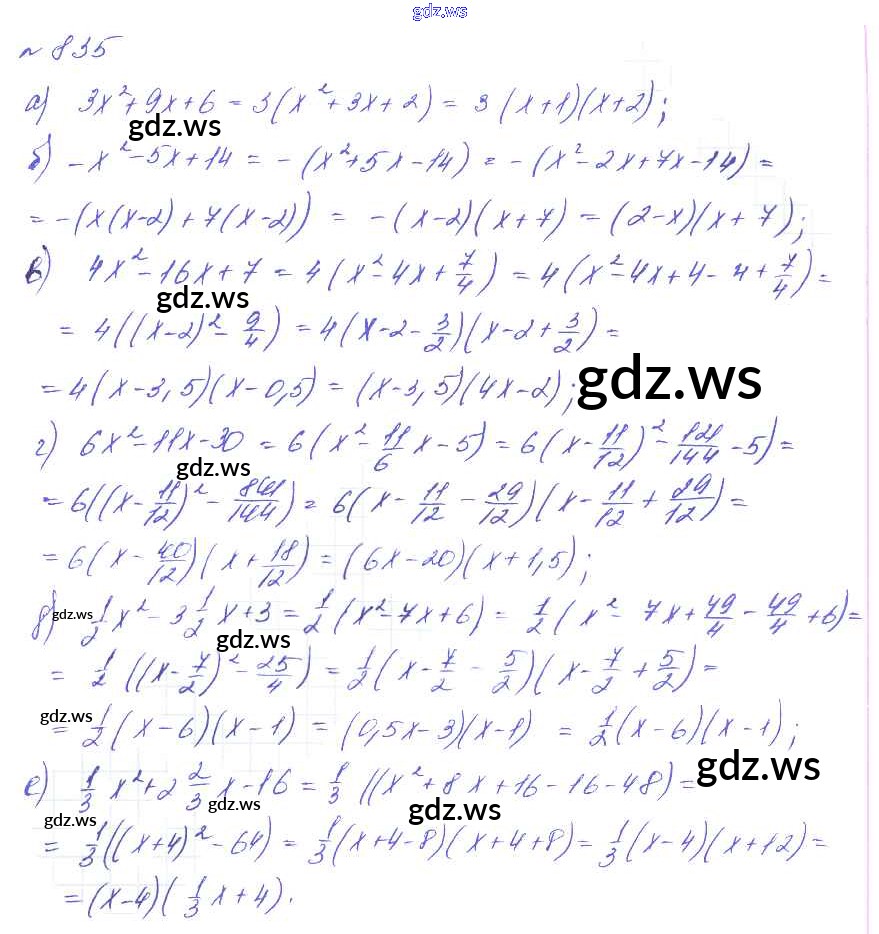 gdz.ws
№ 835
а) 3x² + 9x + 6 = 3(x² + 3x + 2) = 3(x+1)(x+2);
gdz.ws
б) -x² - 5x + 14 = -(x² + 5x - 14) = -(x² - 2x + 7x - 14) =
= -(x(x-2) + 7(x-2)) = -(x-2)(x+7) = (2-x)(x+7);
в) 4x² - 16x + 7 = 4(x² - 4x + 7/4) = 4(x² - 4x + 4 - 4 + 7/4) =
gdz.ws
= 4((x-2)² - 9/4) = 4(x - 2 - 3/2)(x - 2 + 3/2) =
= 4(x - 3,5)(x - 0,5) = (x - 3,5)(4x - 2); gdz.ws
г) 6x² - 11x - 30 = 6(x² - 11/6 x - 5) = 6(x - 11/12)² - 121/144 - 5) =
gdz.ws
= 6((x - 11/12)² - 841/144) = 6(x - 11/12 - 29/12)(x - 11/12 + 29/12) =
= 6(x - 40/12)(x + 18/12) = (6x - 20)(x + 1,5);
д) gdz.ws 1/2 x² - 3 1/2 x + 3 = 1/2 (x² - 7x + 6) = 1/2 (x² - 7x + 49/4 - 49/4 + 6) =
gdz.ws
= 1/2 ((x - 7/2)² - 25/4) = 1/2 (x - 7/2 - 5/2)(x - 7/2 + 5/2) =
gdz.ws
= 1/2 (x - 6)(x - 1) = (0,5x - 3)(x - 1) = 1/2 (x - 6)(x - 1);
gdz.ws
е) 1/3 x² + 2 2/3 x - 16 = 1/3 ((x² + 8x + 16 - 16 - 48) =
gdz.ws gdz.ws
gdz.ws
= 1/3 ((x+4)² - 64) = 1/3 (x + 4 - 8)(x + 4 + 8) = 1/3 (x - 4)(x + 12) =
= (x - 4)(1/3 x + 4).